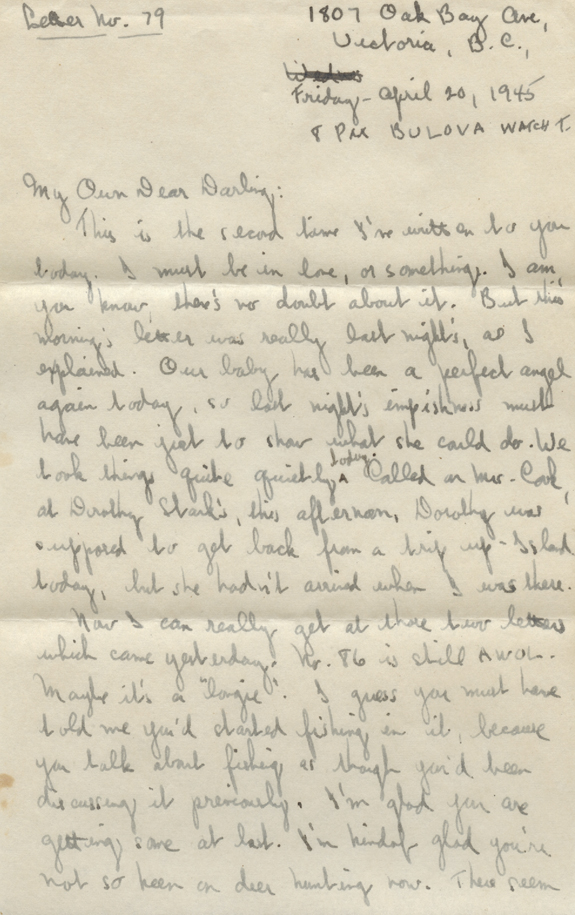 Letter No. 79
1807 Oak Bay Ave,
Victoria, B.C.,
Friday - April 20, 1945
8 PM BULOVA WATCH T.
My Own Dear Darling:
This is the second time I've written to you
today. I must be in love, or something. I am,
you know, there's no doubt about it. But this
morning's letter was really last night's, as I
explained. Our baby has been a perfect angel
again today, so last night's impishness must
have been just to show what she could do. We
took things quite quietly today. Called on Mrs. Cook,
at Dorothy Stark's, this afternoon, Dorothy was
supposed to get back from a trip up-Island
today, but she hadn't arrived when I was there.
Now I can really get at those two letters
which came yesterday. No. 86 is still AWOL.
Maybe it's a "longie". I guess you must have
told me you'd started fishing in it, because
you talk about fishing as though you'd been
discussing it previously. I'm glad you are
getting some at last. I'm kindof glad you're
not so keen on deer hunting now. There seem